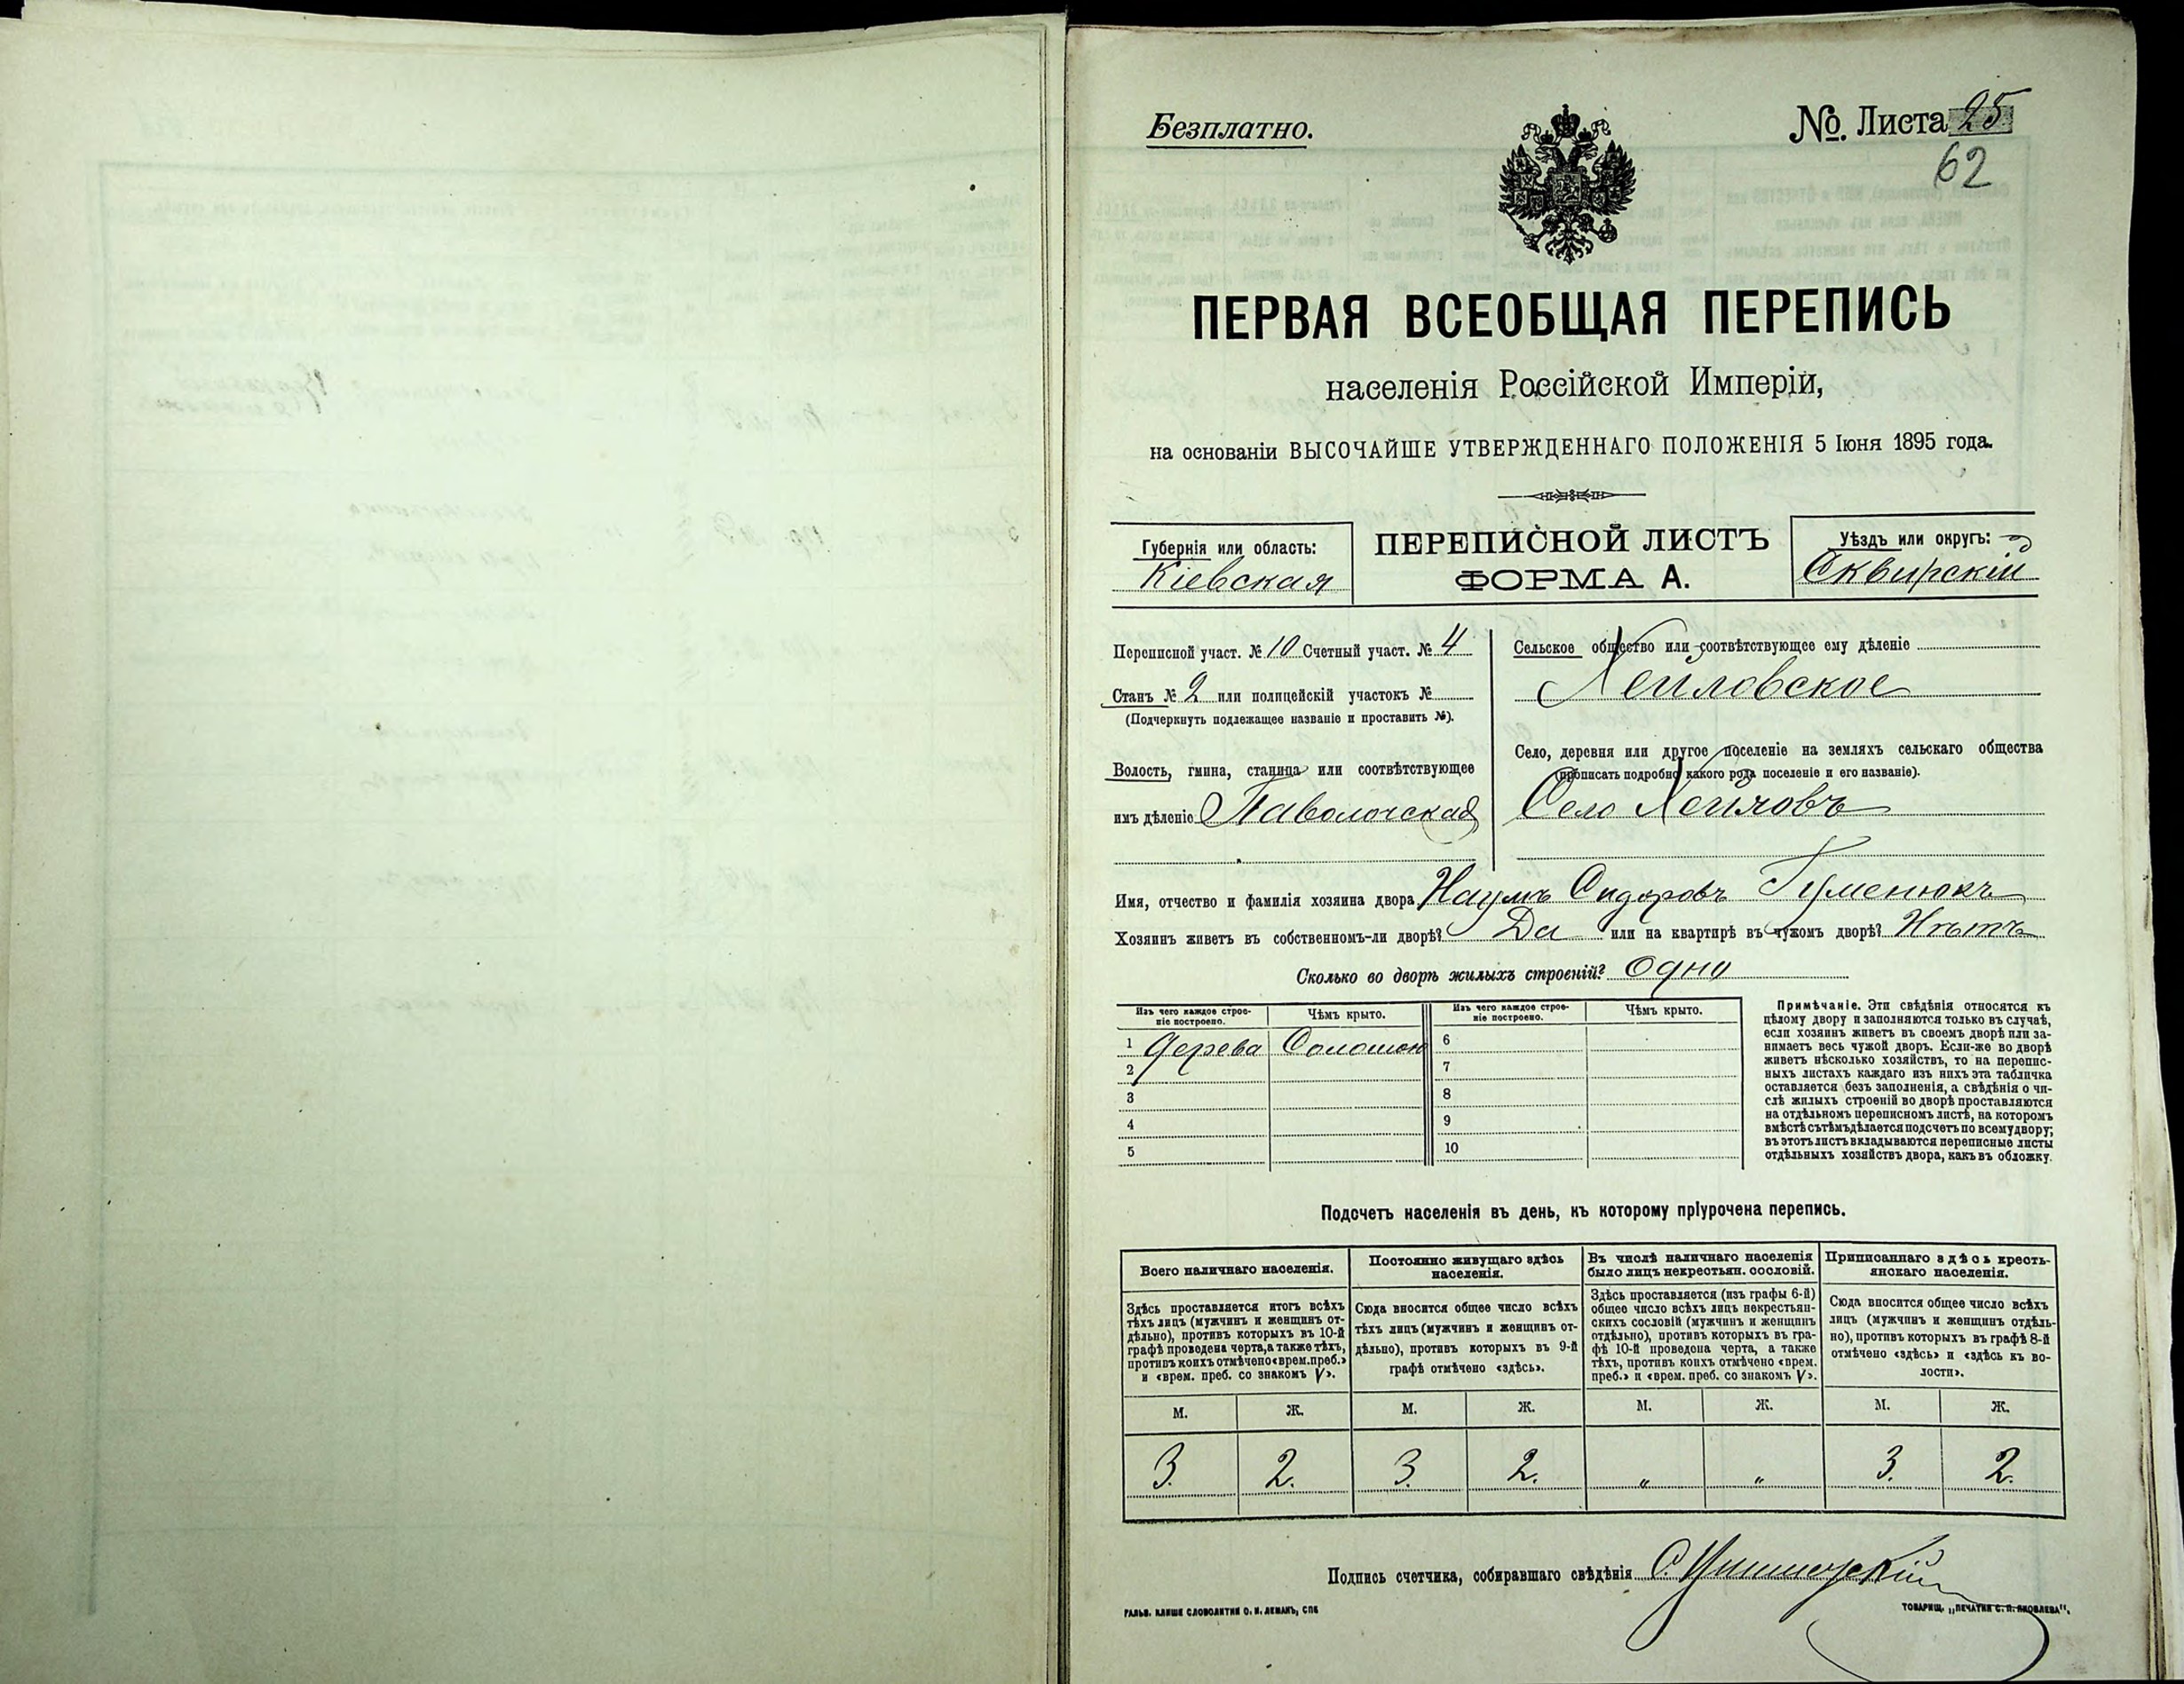 Безплатно.
№ Листа 25
62
ПЕРВАЯ ВСЕОБЩАЯ ПЕРЕПИСЬ
населенія Россійской Имперіи,
на основаніи ВЫСОЧАЙШЕ УТВЕРЖДЕННАГО ПОЛОЖЕНІЯ 5 Іюня 1895 года.
Губернія или область:
Кіевская
ПЕРЕПИСНОЙ ЛИСТЪ
ФОРМА А.
Уѣздъ или округъ:
Сквирскій
Переписной участ. № 10 Счетный участ. № 4
Станъ № 2 или полицейскій участокъ №
(Подчеркнуть подлежащее названіе и проставить №).
Волость, гмина, станица или соотвѣтствующее
имъ дѣленіе Паволочская
Сельское общество или соотвѣтствующее ему дѣленіе
Хейловское
Село, деревня или другое поселеніе на земляхъ сельскаго общества
(прописать подробно какого рода поселеніе и его названіе).
Село Хейловъ
Имя, отчество и фамилія хозяина двора Наумъ Сидоровъ Гуменюкъ
Хозяинъ живетъ въ собственномъ-ли дворѣ? Да или на квартирѣ въ чужомъ дворѣ? Нѣтъ
Сколько во дворѣ жилыхъ строеній? Одно
Изъ чего каждое строе-
ніе построено.
Чѣмъ крыто.
Изъ чего каждое строе-
ніе построено.
Чѣмъ крыто.
1 Дерева Соломою 6
2 7
3 8
4 9
5 10
Примѣчаніе. Эти свѣдѣнія относятся къ
цѣлому двору и заполняются только въ случаѣ,
если хозяинъ живетъ въ своемъ дворѣ или за-
нимаетъ весь чужой дворъ. Если-же во дворѣ
живетъ нѣсколько хозяйствъ, то на перепис-
ныхъ листахъ каждаго изъ нихъ эта табличка
оставляется безъ заполненія, а свѣдѣнія о чи-
слѣ жилыхъ строеній во дворѣ проставляются
на отдѣльномъ переписномъ листѣ, на которомъ
вмѣстѣ съ тѣмъ дѣлается подсчетъ по всему двору;
въ этотъ листъ вкладываются переписные листы
отдѣльныхъ хозяйствъ двора, какъ въ обложку.
Подсчетъ населенія въ день, къ которому пріурочена перепись.
Всего наличнаго населенія.
Здѣсь проставляется итогъ всѣхъ
тѣхъ лицъ (мужчинъ и женщинъ от-
дѣльно), противъ которыхъ въ 10-й
графѣ проведена черта, а также тѣхъ,
противъ коихъ отмѣчено «врем. преб.»
и «врем. преб. со знакомъ V».
Постоянно живущаго здѣсь
населенія.
Сюда вносится общее число всѣхъ
тѣхъ лицъ (мужчинъ и женщинъ от-
дѣльно), противъ которыхъ въ 9-й
графѣ отмѣчено «здѣсь».
Въ числѣ наличнаго населенія
было лицъ некрестьян. сословій.
Здѣсь проставляется (изъ графы 6-й)
общее число всѣхъ лицъ некрестьян-
скихъ сословій (мужчинъ и женщинъ
отдѣльно), противъ которыхъ въ гра-
фѣ 10-й проведена черта, а также
тѣхъ, противъ коихъ отмѣчено «врем.
преб.» и «врем. преб. со знакомъ V».
Приписаннаго здѣсь кресть-
янскаго населенія.
Сюда вносится общее число всѣхъ
лицъ (мужчинъ и женщинъ отдѣль-
но), противъ которыхъ въ графѣ 8-й
отмѣчено «здѣсь» и «здѣсь къ во-
лости».
М. Ж. М. Ж. М. Ж. М. Ж.
3. 2. 3. 2. „ „ 3. 2.
Подпись счетчика, собиравшаго свѣдѣнія С.
ГАЛЬВ. КЛИШЕ СЛОВОЛИТНИ О. И. ЛЕМАНЪ, СПБ
ТОВАРИЩ. „ПЕЧАТНЯ С. П. ЯКОВЛЕВА".